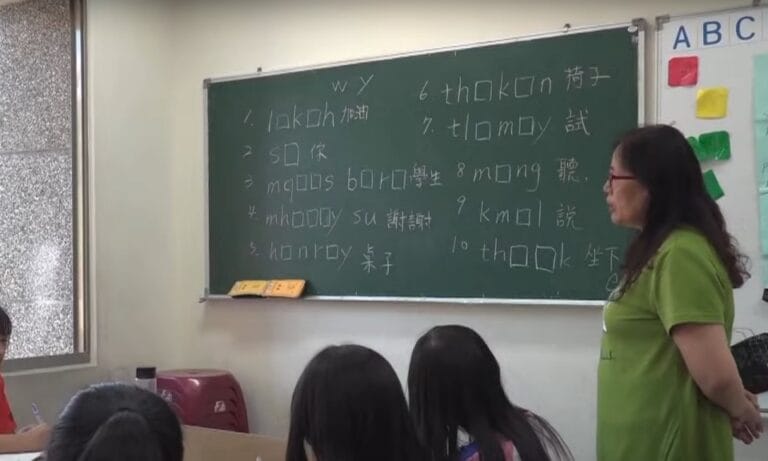 w y
1. l□k□h 加油
2 s□ 你
3 mq□□s b□r□ 學生
4. mh□□□y su 謝謝
5. h□nr□y 桌子
6. th□k□n 椅子
7. tl□m□y 試
8 m□ng 聽.
9 km□l 說
10 th□□k 坐下
A B C